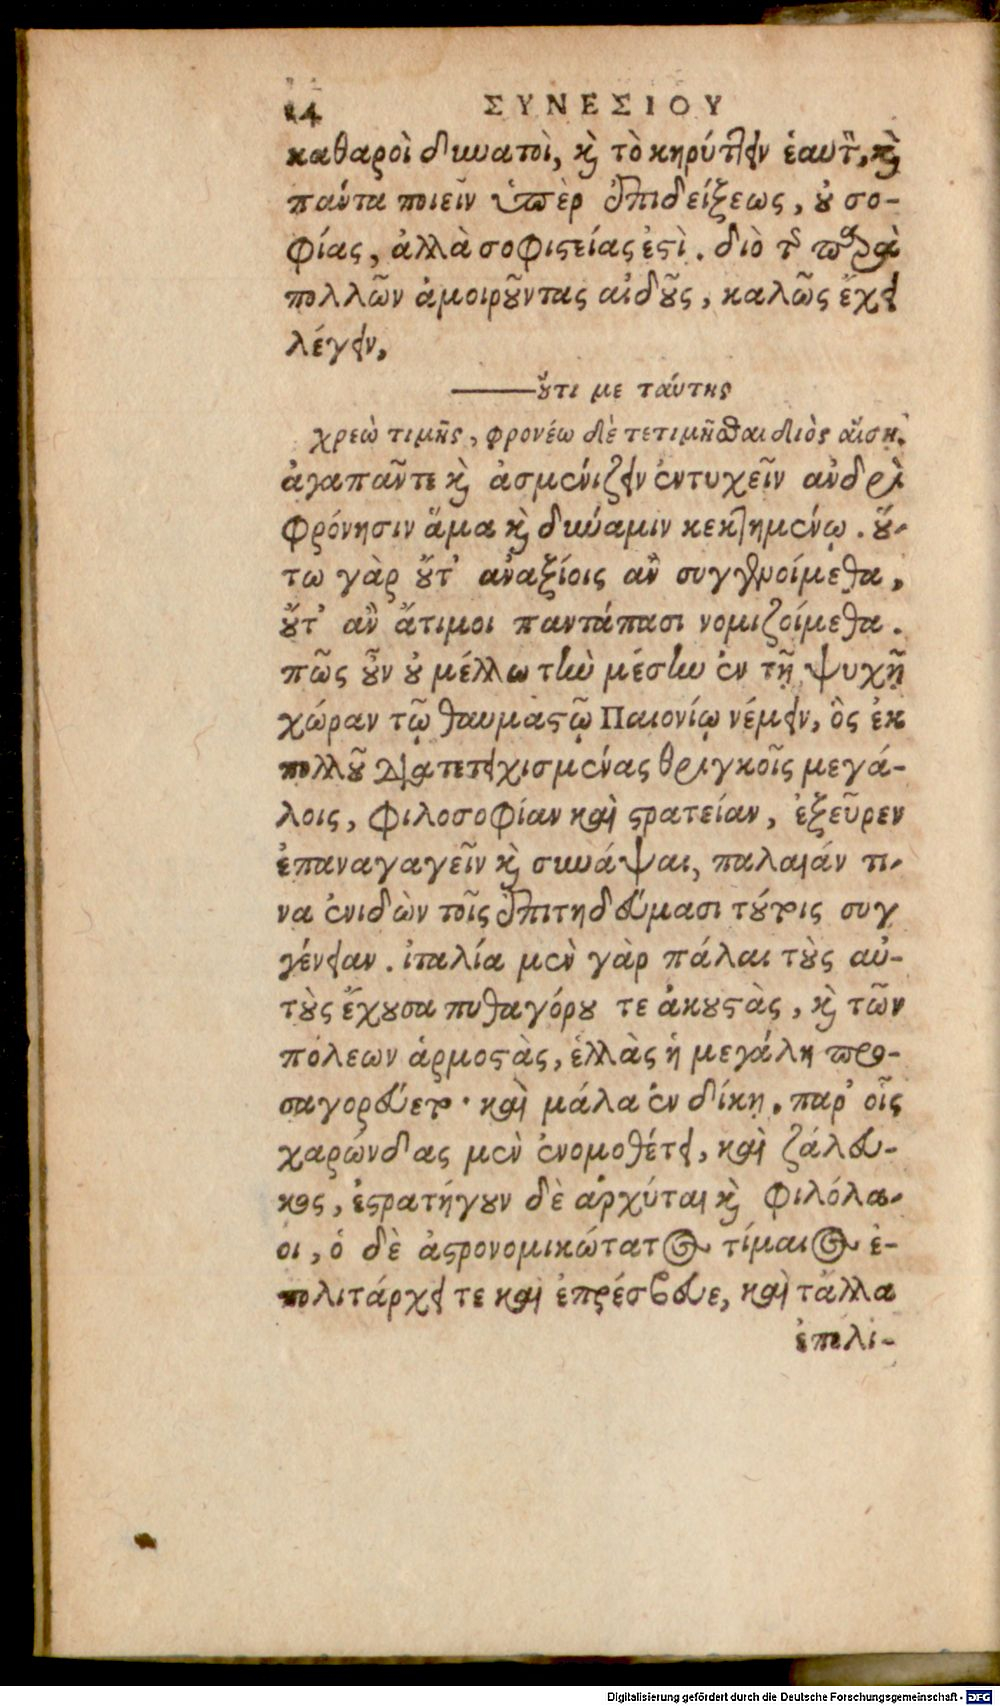 14 ΣΥΝΕΣΙΟΥ
καθαροὶ δυνατοὶ, καὶ τὸ κηρύττειν ἑαυτὸν, καὶ
πάντα ποιεῖν ὑπὲρ ἐπιδείξεως, οὐ σο-
φίας, ἀλλὰ σοφιστείας ἐστὶ. διὸ τῆς παρὰ
πολλῶν ἀμοιροῦντας αἰδοῦς, καλῶς ἔχει
λέγειν,
——οὔτι με ταύτης
χρεὼ τιμῆς, φρονέω δὲ τετιμῆσθαι διὸς αἴσῃ.
ἀγαπᾶν τε καὶ ἀσμενίζειν ἐντυχεῖν ἀνδρὶ
φρόνησιν ἅμα καὶ δύναμιν κεκτημένῳ. οὕ-
τω γὰρ οὔτ' ἀναξίοις ἂν συγγενοίμεθα,
οὔτ' ἂν ἄτιμοι παντάπασι νομιζοίμεθα.
πῶς οὖν οὐ μέλλω τὴν μέσην ἐν τῇ ψυχῇ
χώραν τῷ θαυμαστῷ Παιονίῳ νέμειν, ὃς ἐκ
πολλοῦ διατετειχισμένας θριγκοῖς μεγά-
λοις, φιλοσοφίαν καὶ στρατείαν, ἐξεῦρεν
ἐπαναγαγεῖν καὶ συνάψαι, παλαιάν τι-
να ἐνιδὼν τοῖς ἐπιτηδεύμασι τούτοις συγ
γένειαν. ἰταλία μὲν γὰρ πάλαι τοὺς αὐ-
τοὺς ἔχουσα πυθαγόρου τε ἀκουστὰς, καὶ τῶν
πόλεων ἁρμοστὰς, ἑλλὰς ἡ μεγάλη προ-
σαγορεύετο· καὶ μάλα ἐν δίκῃ. παρ' οἷς
χαρώνδας μὲν ἐνομοθέτει, καὶ ζάλευ-
κος, ἐστρατήγουν δὲ ἀρχύται καὶ φιλόλα-
οι, ὁ δὲ ἀστρονομικώτατος τίμαιος ἐ-
πολιτάρχει τε καὶ ἐπρέσβευε, καὶ τἄλλα
ἐπολι-
Digitalisierung gefördert durch die Deutsche Forschungsgemeinschaft - DFG